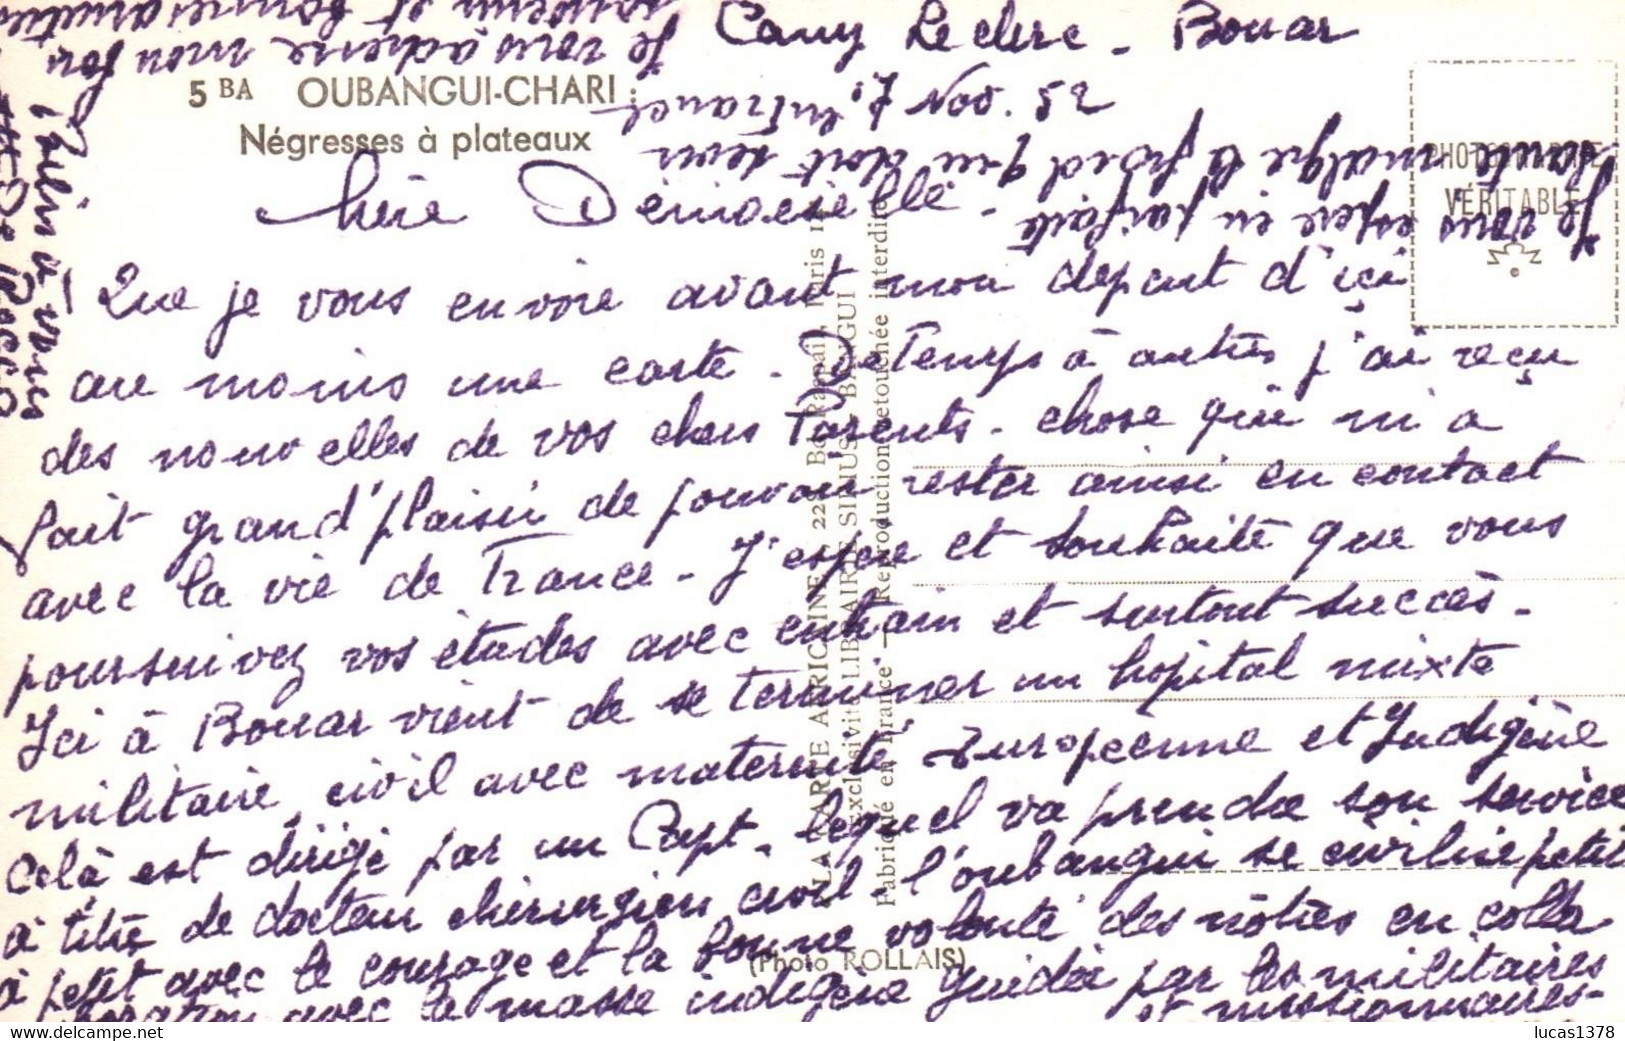 Camp Leclerc - Bouar
7 Nov. 52
5 BA OUBANGUI-CHARI :
Négresses à plateaux
PHOTOGRAPHIE
VÉRITABLE
Chère Demoiselle -
Que je vous envoie avant mon départ d'içi
au moins une carte - De Temps à autres j'ai reçu
des nouvelles de vos chers Parents - chose qui m'a
fait grand plaisir de pouvoir rester ainsi en contact
avec la vie de France - J'espère et souhaite que vous
poursuivez vos études avec entrain et surtout succès -
Ici à Bouar vient de se terminer un hôpital mixte
militaire, civil avec maternité Européenne et Indigène
Celà est dirigé par un Capt. lequel va prendre son service
à titre de docteur chirurgien civil l'oubangui se civilise petit
à petit avec le courage et la bonne volonté des nôtres en colla
boration avec la masse indigène guidée par les militaires
et missionnaires -
Je vous espère en parfaite
santé malgré le froid qui doit sévir
en France -
Je vous adresse mon bon
souvenir et bonnes amitiés
Bien à vous
LA CARTE AFRICAINE 229 Bd Raspail, Paris 14e
Exclusivité LIBRAIRIE SIRIUS - BANGUI
Fabriqué en France — Reproduction retouchée interdite
(Photo ROLLAIS)
lucas1378